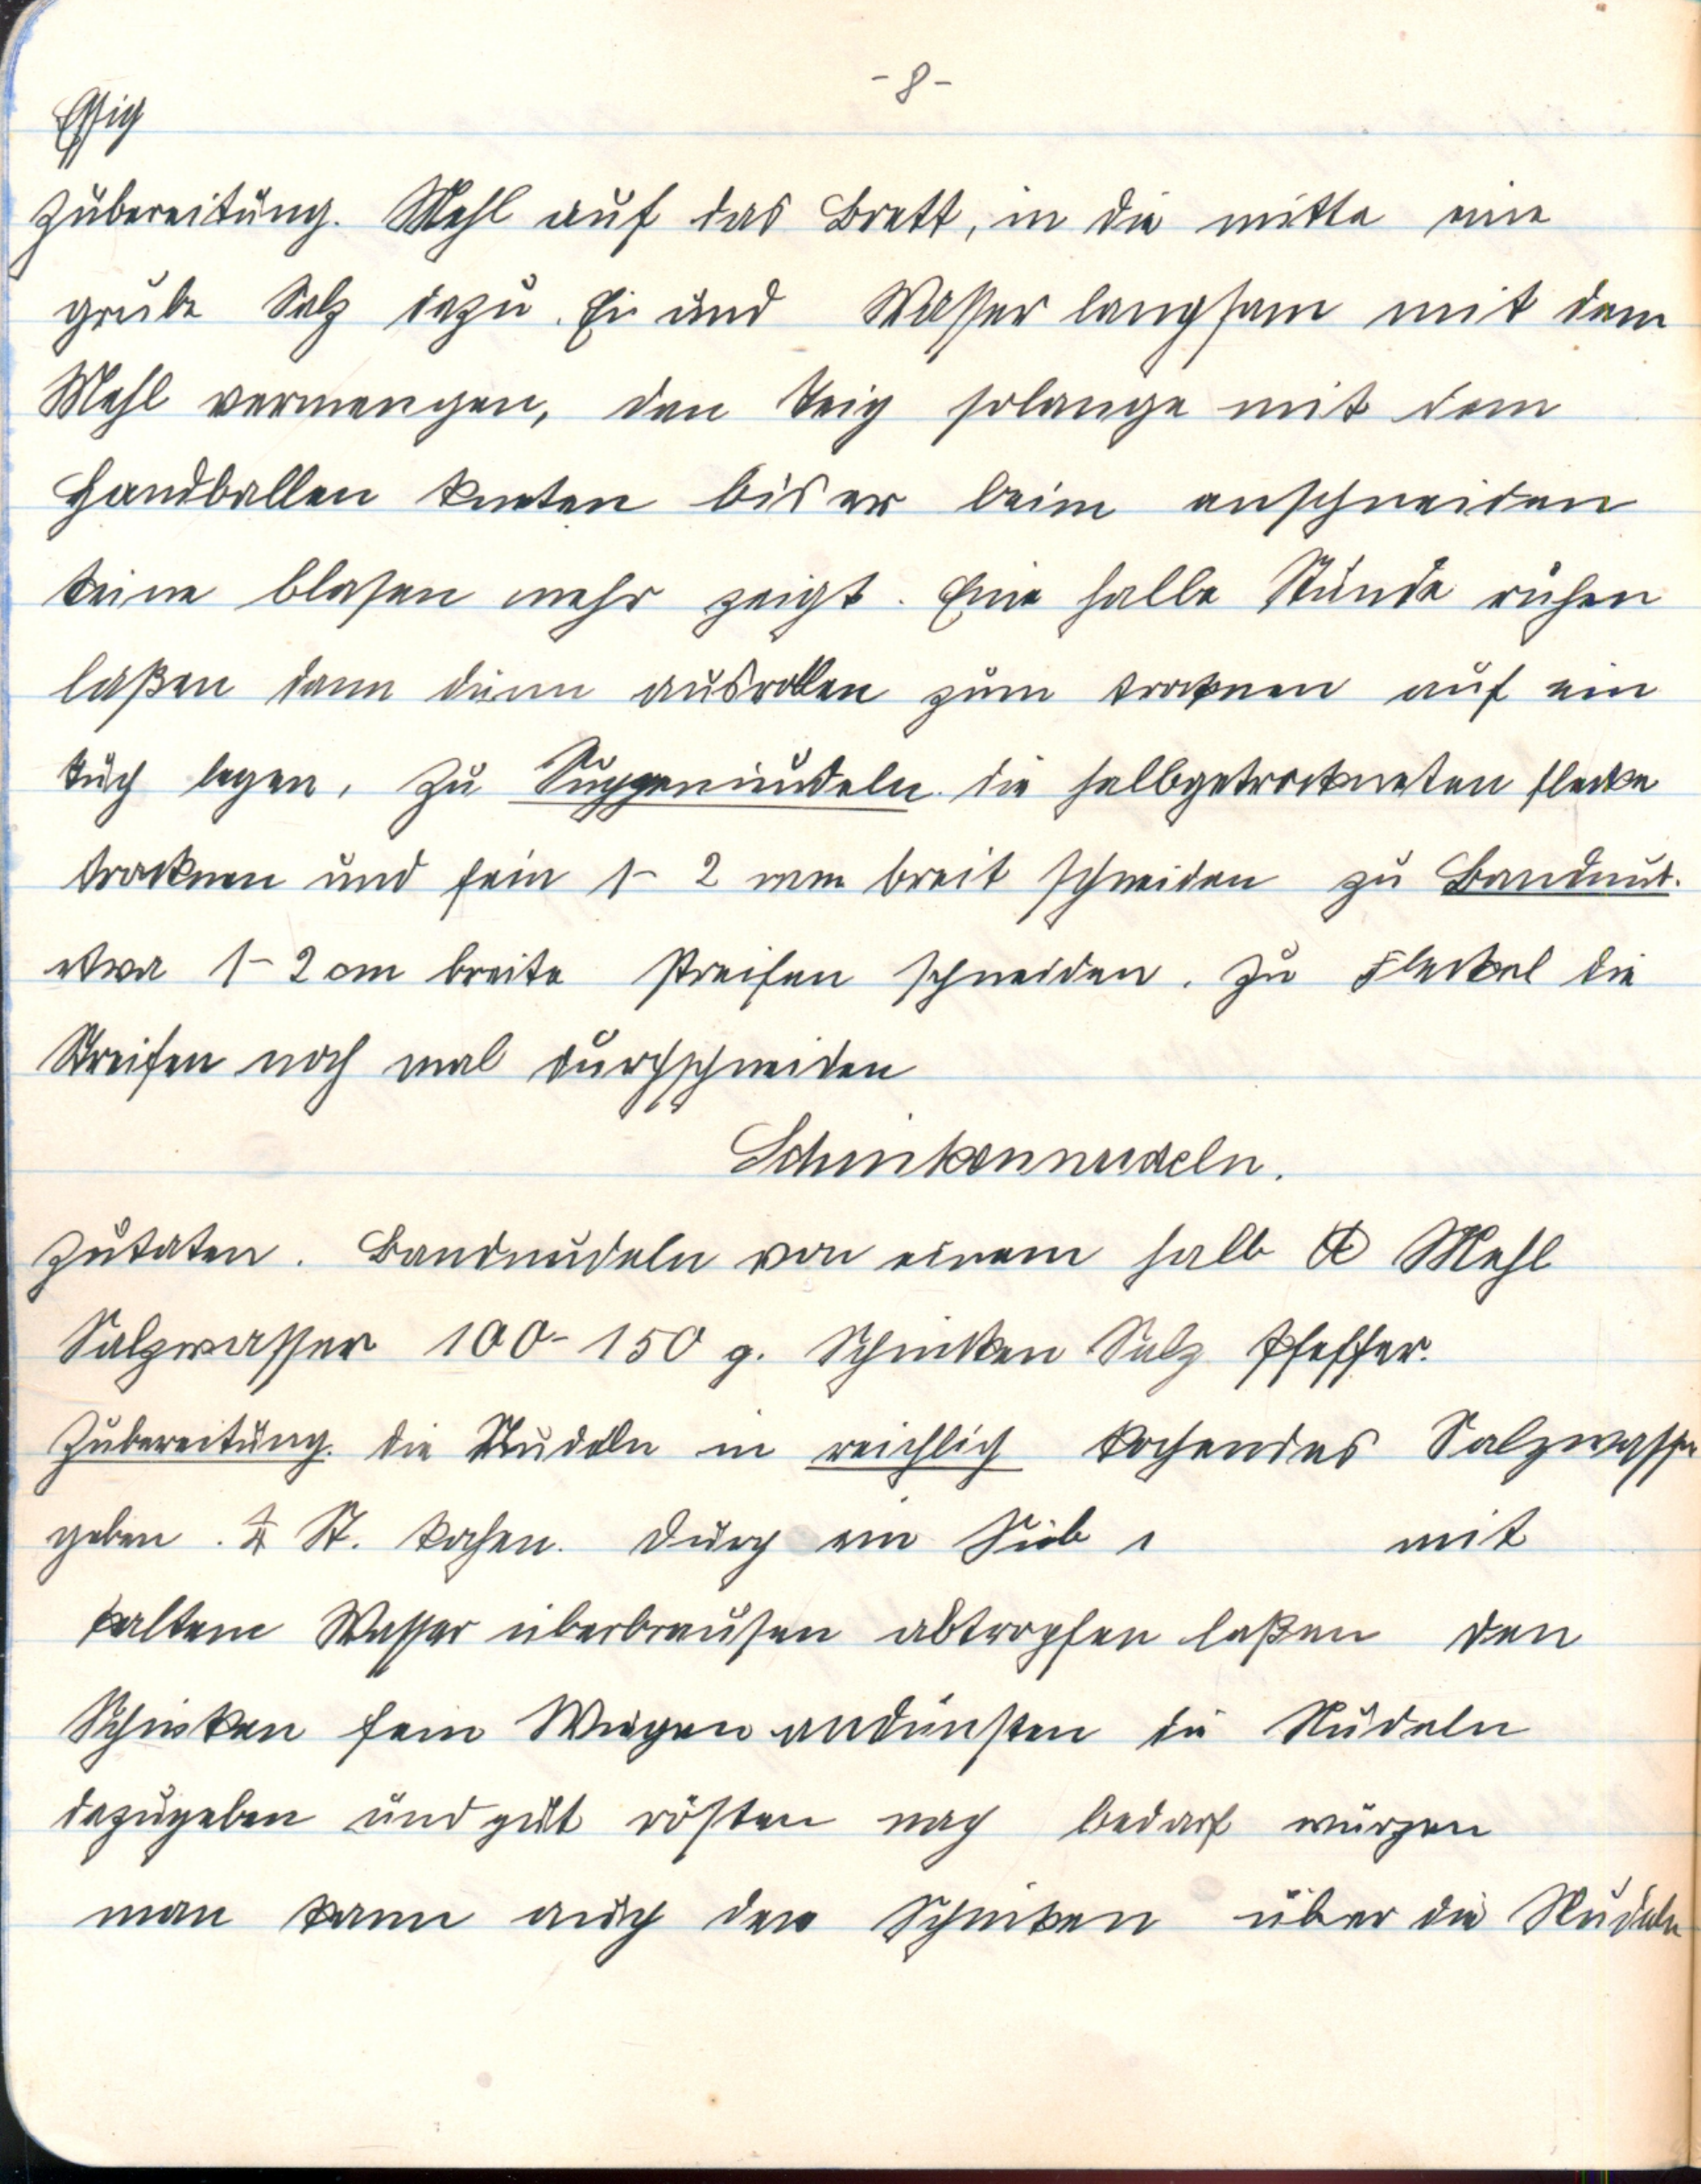 - 8 -
Essig
Zubereitung. Mehl auf das Brett, in die mitte eine
grube Salz dazu. Ei und Wasser langsam mit dem
Mehl vermengen, den Teig solange mit dem
Handballen kneten bis er beim anschneiden
keine blasen mehr zeigt. Eine halbe Stunde ruhen
laßen dann dünn ausrollen zum trocknen auf ein
tuch legen, zu Suppennudeln die halbgetrockneten flecke
trocknen und fein 1- 2 mm breit schneiden zu Bandnud.
etwa 1-2 cm breite streifen schneiden. Zu Fleckel die
Streifen noch mal durchschneiden
Schinkennudeln.
Zutaten. Bandnudeln von einem halb ℔ Mehl
Salzwasser 100-150 g. Schinken Salz Pfeffer.
Zubereitung. die Nudeln in reichlich kochendes Salzwasser
geben. ¼ St. kochen. durch ein Sieb mit
kaltem Wasser überbrausen abtropfen laßen den
Schinken fein Wiegen andünsten die Nudeln
dazugeben und gut rösten nach bedarf würzen
man kann auch den Schinken über die Nudeln